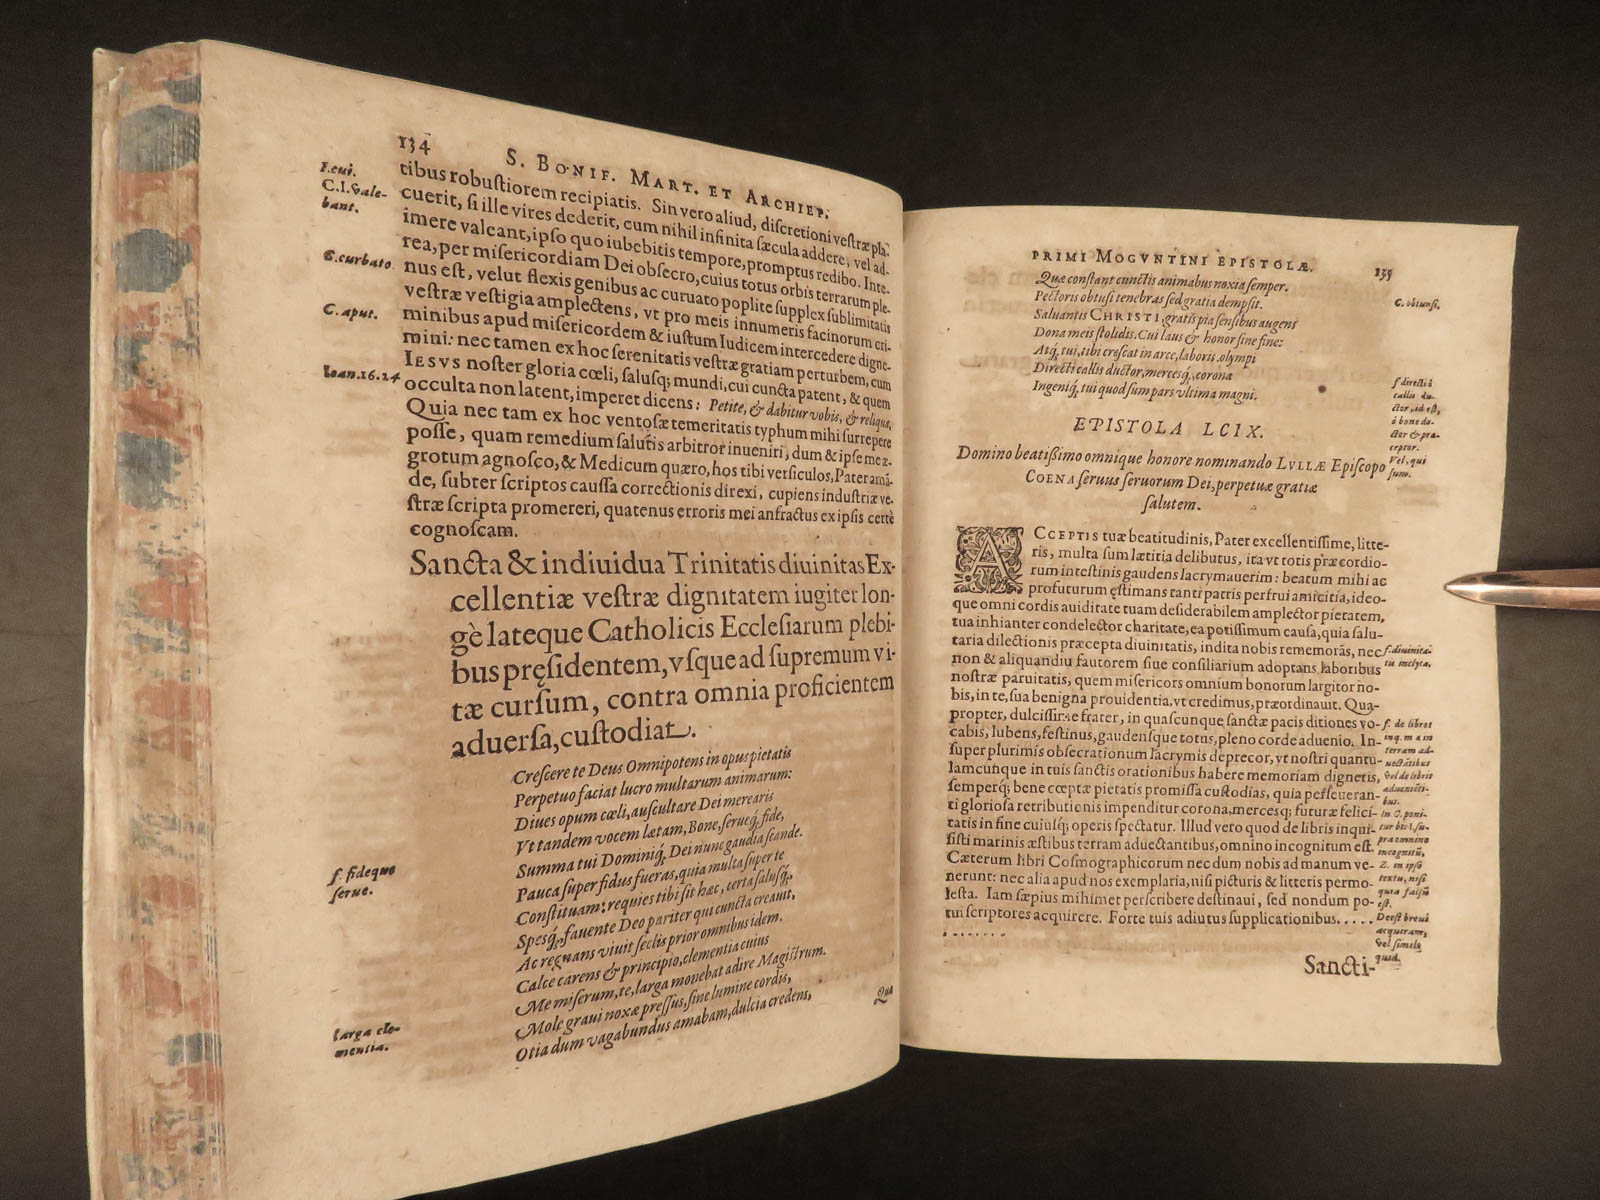 134
S. BONIF. MART. ET ARCHIEP.
tibus robuſtiorem recipiatis. Sin vero aliud, diſcretioni veſtræ pla-
cuerit, ſi ille vires dederit, cum nihil infinita ſæcula addere, vel ad-
imere valeant, ipſo quo iubebitis tempore, promptus redibo. Inte-
rea, per miſericordiam Dei obſecro, cuius totus orbis terrarum ple-
nus eſt, velut flexis genibus ac curuato poplite ſupplex ſublimitatis
veſtræ veſtigia amplectens, vt pro meis innumeris facinorum cri-
minibus apud miſericordem & iuſtum Iudicem intercedere digne-
mini: nec tamen ex hoc ſerenitatis veſtræ gratiam perturbem, cum
IESVS noſter gloria cœli, ſalusq́; mundi, cui cuncta patent, & quem
occulta non latent, imperet dicens: Petite, & dabitur vobis, & reliqua,
Quia nec tam ex hoc ventoſæ temeritatis typhum mihi ſurrepere
poſſe, quam remedium ſalutis arbitror inueniri, dum & ipſe me æ-
grotum agnoſco, & Medicum quæro, hos tibi verſiculos, Pater amā-
de, ſubter ſcriptos cauſſa correctionis direxi, cupiens induſtriæ ve-
ſtræ ſcripta promereri, quatenus erroris mei anfractus ex ipſis certè
cognoſcam.
Sancta & indiuidua Trinitatis diuinitas Ex-
cellentiæ veſtræ dignitatem iugiter lon-
gè lateque Catholicis Eccleſiarum plebi-
bus pręſidentem, vſque ad ſupremum vi-
tæ curſum, contra omnia proficientem
aduerſa, cuſtodiat.
Creſcere te Deus Omnipotens in opus pietatis
Perpetuo faciat lucro multarum animarum:
Diues opum cœli, auſcultare Dei merearis
Vt tandem vocem lætam, Bone, ſerueq́, fide,
Summa tui Dominiq́, Dei nunc gaudia ſcande.
Pauca ſuper fidus fueras, quia multa ſuper te
Conſtituam: requies tibi ſit hæc, certa ſalusq́,
Spesq́, fauente Deo pariter qui cuncta creauit,
Ac regnans viuit ſeclis prior omnibus idem.
Calce carens & principio, clementia cuius
Me miſerum, te, larga monebat adire Magiſtrum.
Mole graui noxæ preſſus, ſine lumine cordis,
Otia dum vagabundus amabam, dulcia credens,
Quæ
f. cui.
C. I. vale-
bant.
C. curbato
C. aput.
Ioan. 16. 24
f. fideque
ſerue.
larga cle-
mentia.
PRIMI MOGVNTINI EPISTOLÆ.
135
Quæ conſtant cunctis animabus noxia ſemper.
Pectoris obtuſi tenebras ſed gratia dempſit.
Saluantis CHRISTI, gratis pia ſenſibus augens
Dona meis ſtolidis. Cui laus & honor ſine fine:
Atq́, tui, tibi creſcat in arce, laboris olympi
Directi callis ductor, mercesq́, corona
Ingeniq́, tui quod ſum pars vltima magni.
EPISTOLA LCIX.
Domino beatißimo omnique honore nominando LVLLÆ Epiſcopo
COENA ſeruus ſeruorum Dei, perpetuæ gratiæ
ſalutem.
ACCEPTIS tuæ beatitudinis, Pater excellentiſſime, litte-
ris, multa ſum lætitia delibutus, ita vt totis præcordio-
rum inteſtinis gaudens lacrymauerim: beatum mihi ac
profuturum ęſtimans tanti patris perfrui amicitia, ideo-
que omni cordis auiditate tuam deſiderabilem amplector pietatem,
tua inhianter condelector charitate, ea potiſſimum cauſa, quia ſalu-
taria dilectionis præcepta diuinitatis, indita nobis rememorās, nec
non & aliquandiu fautorem ſiue conſiliarium adoptans laboribus
noſtræ paruitatis, quem miſericors omnium bonorum largitor no-
bis, in te, ſua benigna prouidentia, vt credimus, præordinauit. Qua-
propter, dulciſſime frater, in quaſcunque ſanctæ pacis ditiones vo-
cabis, lubens, feſtinus, gaudensque totus, pleno corde aduenio. In-
ſuper plurimis obſecrationum lacrymis deprecor, vt noſtri quantu-
lamcunque in tuis ſanctis orationibus habere memoriam digneris,
ſemperq́; bene cœptæ pietatis promiſſa cuſtodias, quia perſeueran-
ti glorioſa retributionis impenditur corona, mercesq́; futuræ felici-
tatis in fine cuiusq́; operis ſpectatur. Illud vero quod de libris inqui-
ſiſti marinis æſtibus terram aduectantibus, omnino incognitum eſt.
Cæterum libri Coſmographicorum nec dum nobis ad manum ve-
nerunt: nec alia apud nos exemplaria, niſi picturis & litteris permo-
leſta. Iam ſæpius mihimet perſcribere deſtinaui, ſed nondum po-
tui ſcriptores acquirere. Forte tuis adiutus ſupplicationibus. . . . .
. . . . . . .
Sancti-
C. obtunſi.
f directi ô
callis du-
ctor, id eſt,
ô bone do-
ctor & præ-
ceptor.
Vel, qui
ſum.
f. diuinita-
tu inclyta.
f. de libros
inq. m a in
terram ad-
uectātibus
vel de libris
aduenīēti-
bus.
in O. poni-
tur bis l. ſu-
pra omnino
incognitū,
Z. in ipſo
textu, niſi
quia falsū
eſt.
Deeſt breui
acquiram,
vel ſimile
quid.